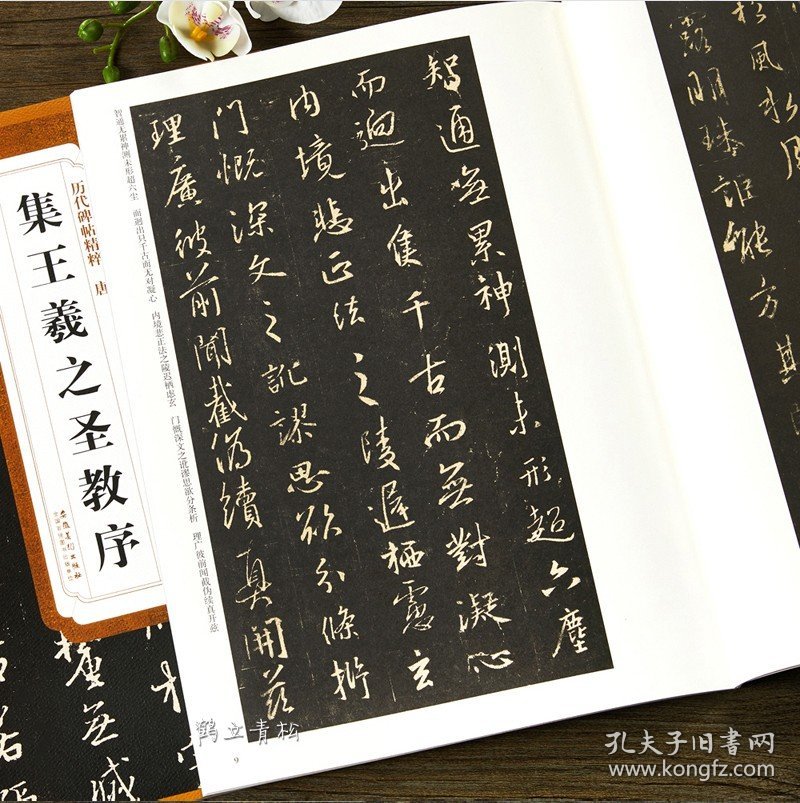 智通無累神測未形超六塵
而迥出隻千古而無對凝心
内境悲正法之陵遲栖慮玄
門慨深文之訛謬思欲分條析
理廣彼前聞截偽續真開茲
智通无累神测未形超六尘 而迥出只千古而无对凝心 内境悲正法之陵迟栖虑玄 门慨深文之讹谬思欲分条析 理广彼前闻截伪续真开兹
9
松風水月
露明珠詎能方其
历代碑帖精粹 唐
集王羲之圣教序
安徽美术出版社
鹤立青松
孔夫子旧书网
www.kongfz.com